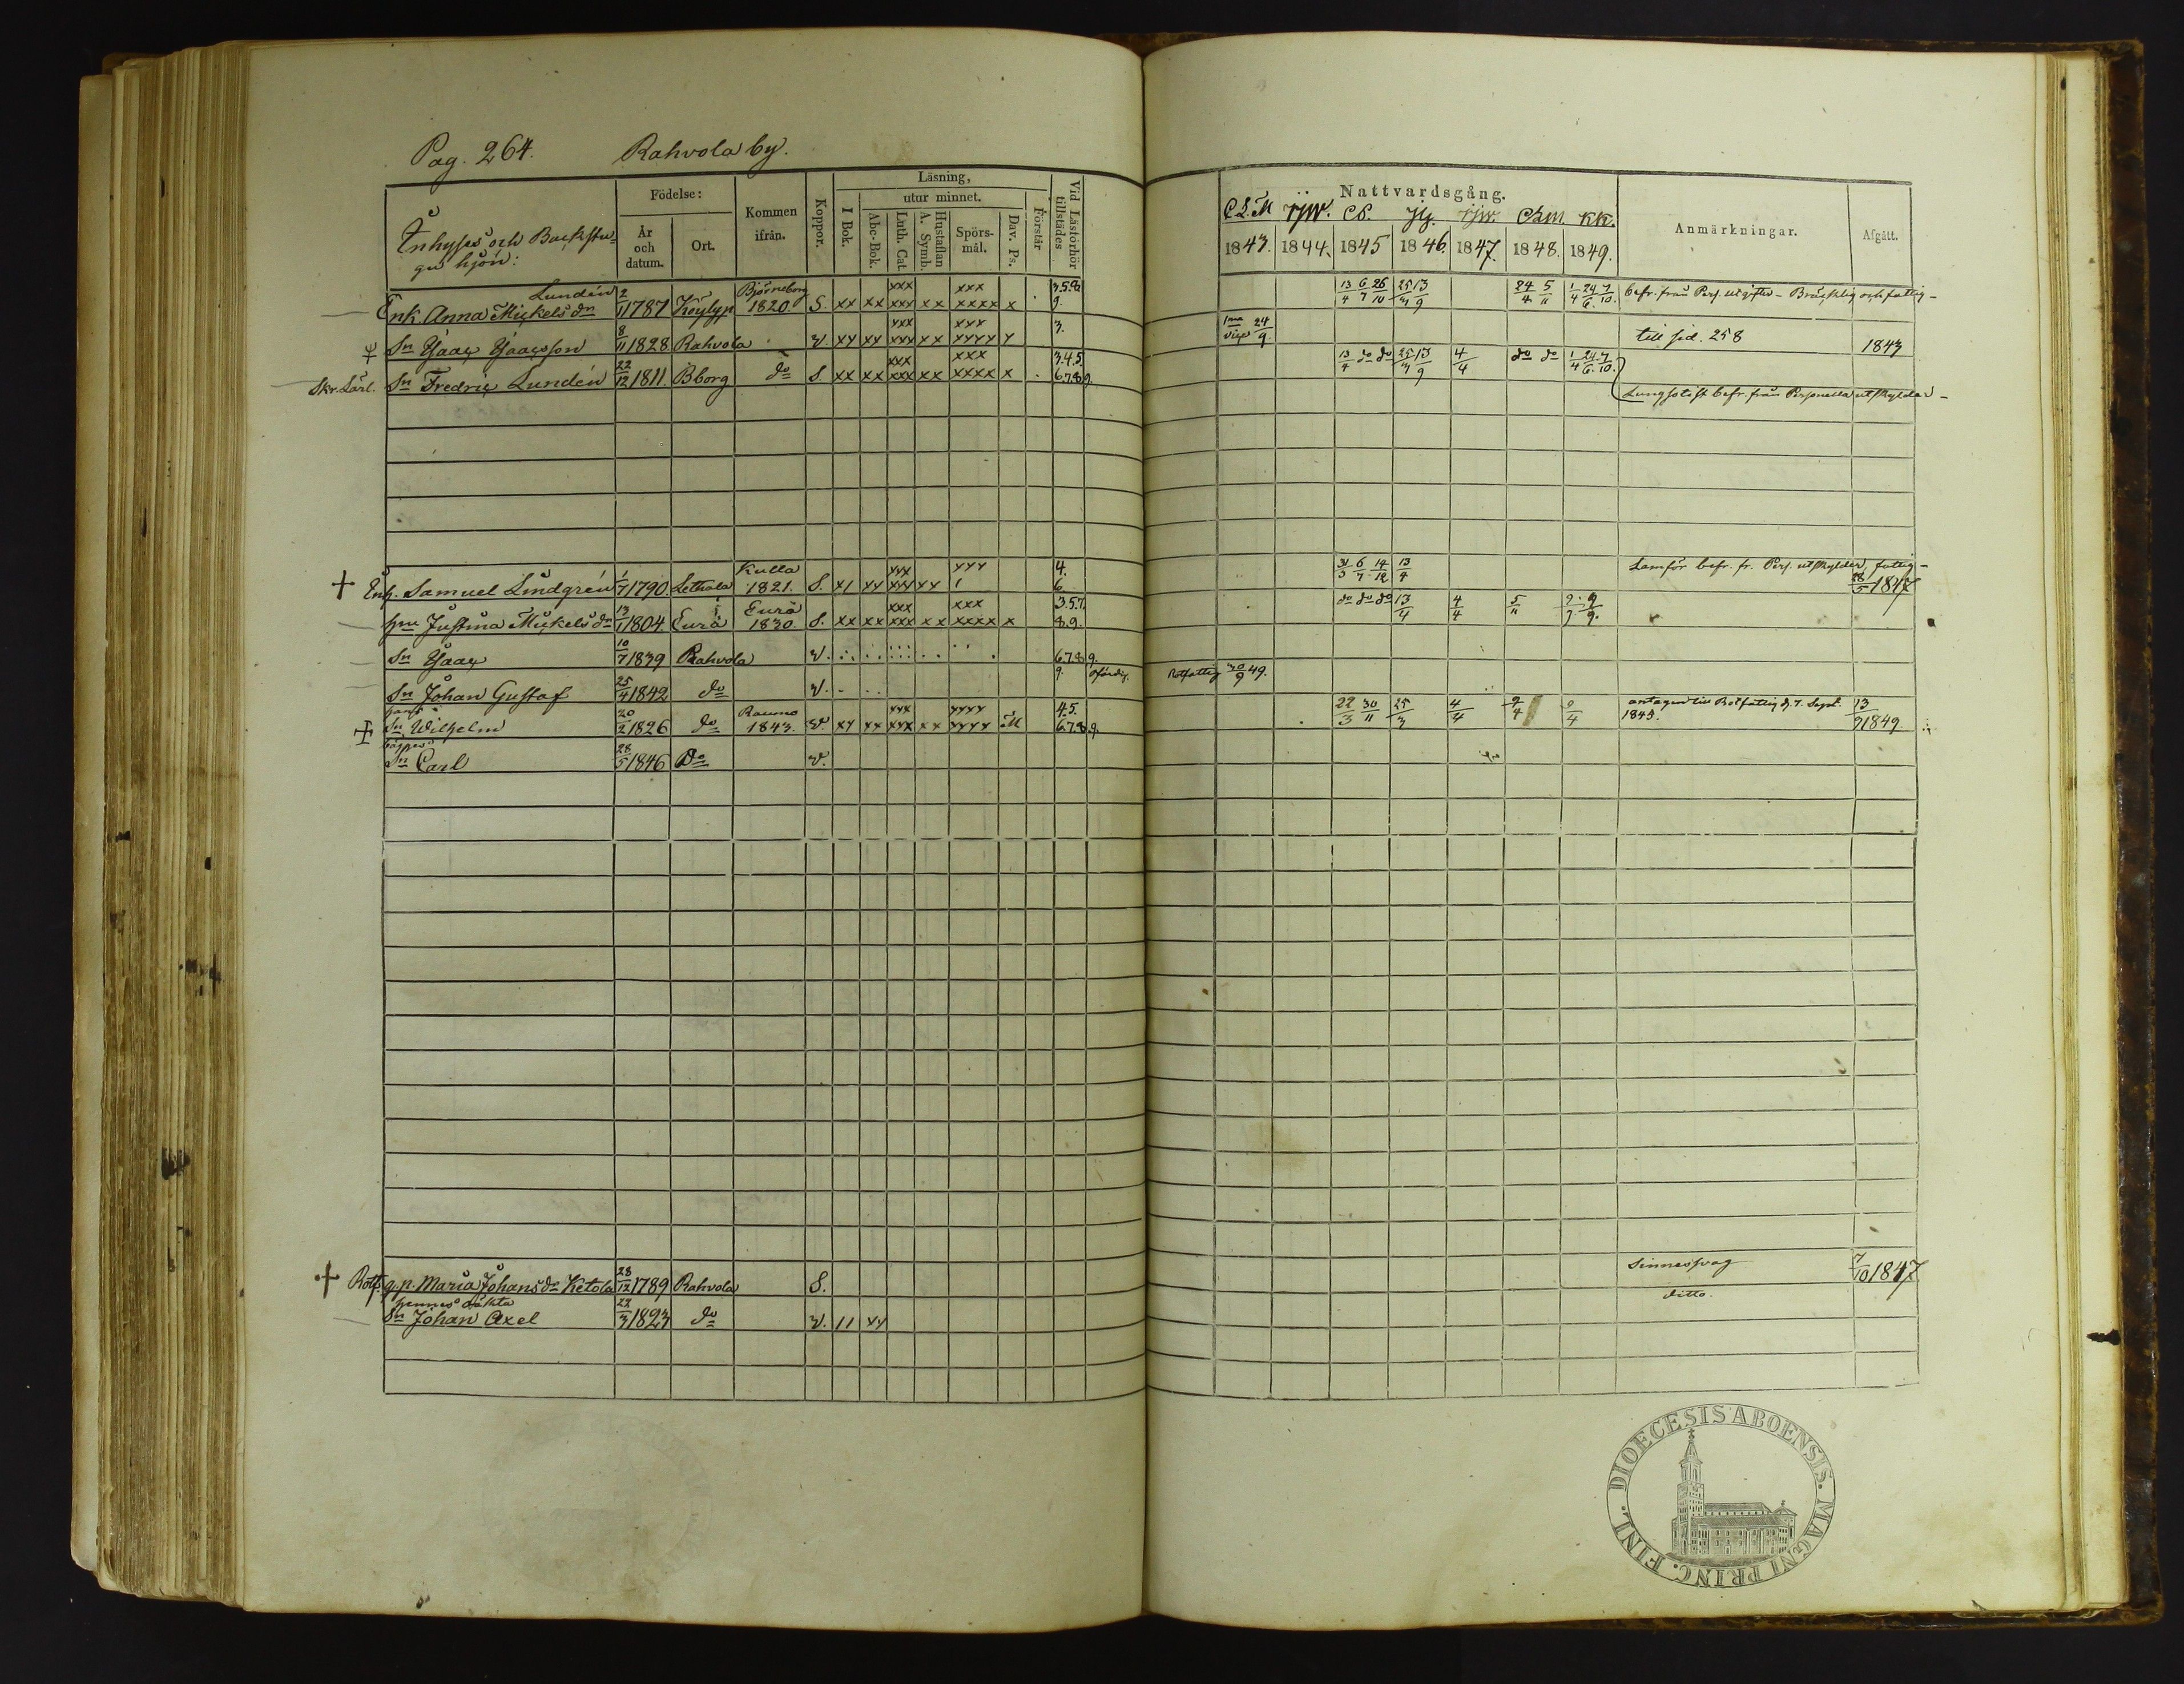 Pag. 264. Rahvola by.
Inhyses och Backstu-
gu hjon:
Födelse:
År och datum.
Ort.
Kommen ifrån.
Koppor.
Läsning,
utur minnet.
I Bok.
Abc-Bok.
Luth. Cat.
Hustaflan A. Symb.
Spörs-mål.
Dav. Ps.
Förstår
Vid Läsförhör tillstädes
Nattvardsgång.
1843. 1844. 1845 1846. 1847. 1848. 1849.
Anmärkningar.
Afgått.
Lundén
Enk. Anna Mickels dr 2/11 1787 Köyliyp Björneborg 1820. S. xx xx xxx xxx xx xxx xxxx x 3.5.8. 9. 13/4 6/7 26/10 25/3 13/9 24/4 5/11 1/4 24/6. 7/10. befr. från Pers. utgifter - Bräcklig och fattig -
Sn Isaac Isaacsson 8/11 1828 Rahvola v. xx xx xxx xxx xx xxx xxxx x 3. 1ma vice 24/9 till sid. 258 1843
Skr. Lärl. Sn Fredric Lundén 22/12 1811. Bborg do S. xx xx xxx xxx xx xxx xxxx x 3.4.5. 6.7.8.9. 13/4 do do 25/3 13/9 4/4 do do 1/4 24/6. 7/10.
Lungsotist befr. från Personella utskylder -
Inh. Samuel Lindgrén 1/7 1790 Lethala Kulla 1821. S. x1 xx xxx xxx xx xxx 1 4. 6 31/3 6/7 14/12 13/4 Lamför befr. fr. Pers. utskylder, fattig - 28/5 1847
Hu Justina Mickels dr 13/1 1804 Eura Eura 1830 S. xx xx xxx xxx xx xxx xxxx x 3.5.7. 8.9. do do do 13/4 4/4 5/11 9/9.
Sn Isaac 10/7 1839 Rahvola v. 6.7.8.9.
Sn Johan Gustaf 25/4 1842 do v. 9. ofärdig. Rotfattig 30/9 49.
Sn Wilhelm 20/2 1826 do Raumo 1843. v. xx xx xxx xxx xx xxxx xxxx M 4.5. 6.7.8.9. 22/3 30/11 25/3 4/4 9/4 antagen till Rotfattig d. 7. Sept. 1845. 13/9 1849.
Sn Carl 28/5 1846 Do v.
Rotf. q.p. Maria Johans dr Ketola 28/12 1789 Rahvola S. Sinnessvag 7/10 1847
hennes oäkta
Sn Johan Axel 22/3 1823 do v. 11 xx ditto.
DIOECESIS ABOENSIS. MAGNI PRINC. FINL.